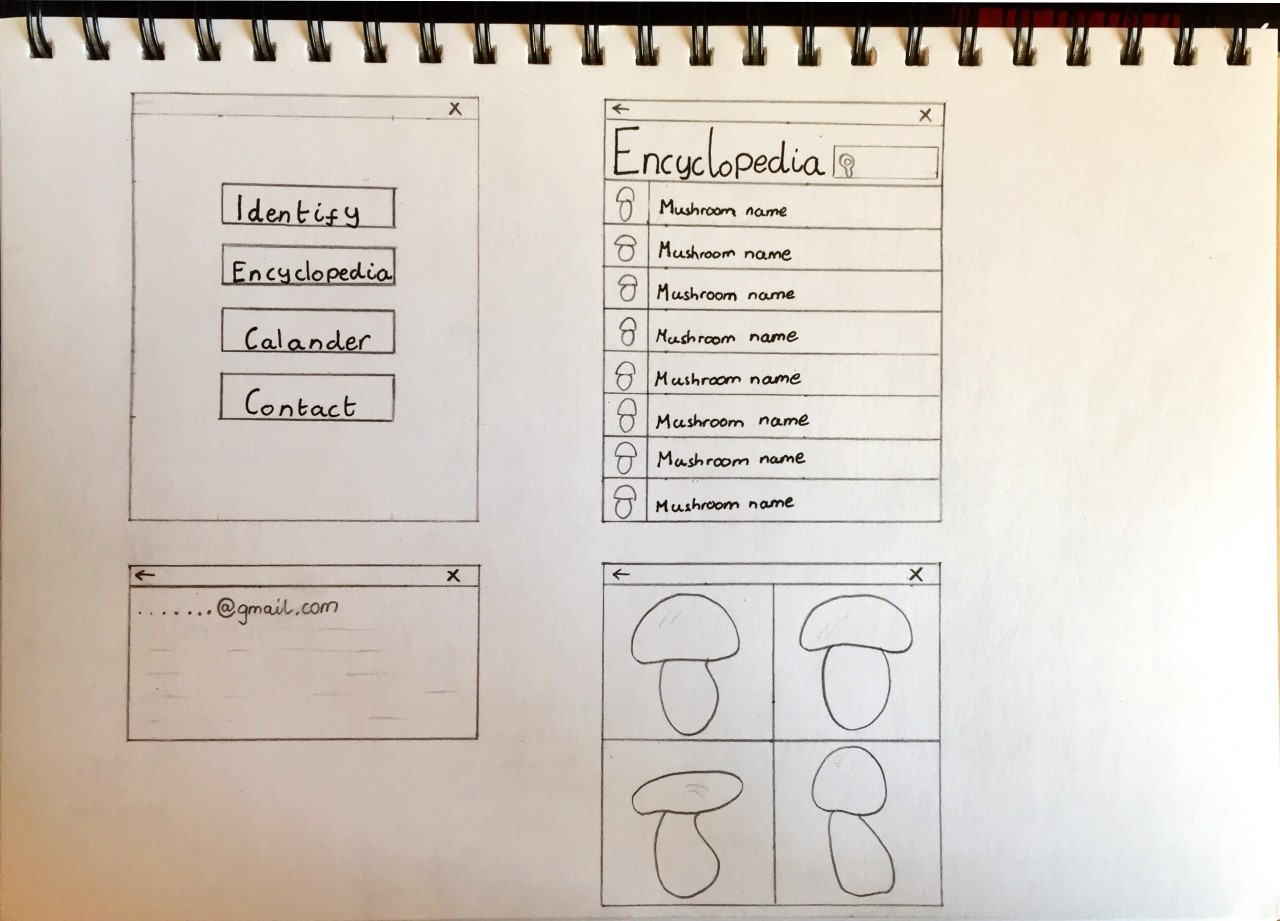 X
Identify
Encyclopedia
Calander
Contact
← X
Encyclopedia
Mushroom name
Mushroom name
Mushroom name
Mushroom name
Mushroom name
Mushroom name
Mushroom name
Mushroom name
← X
.......@gmail.com
← X